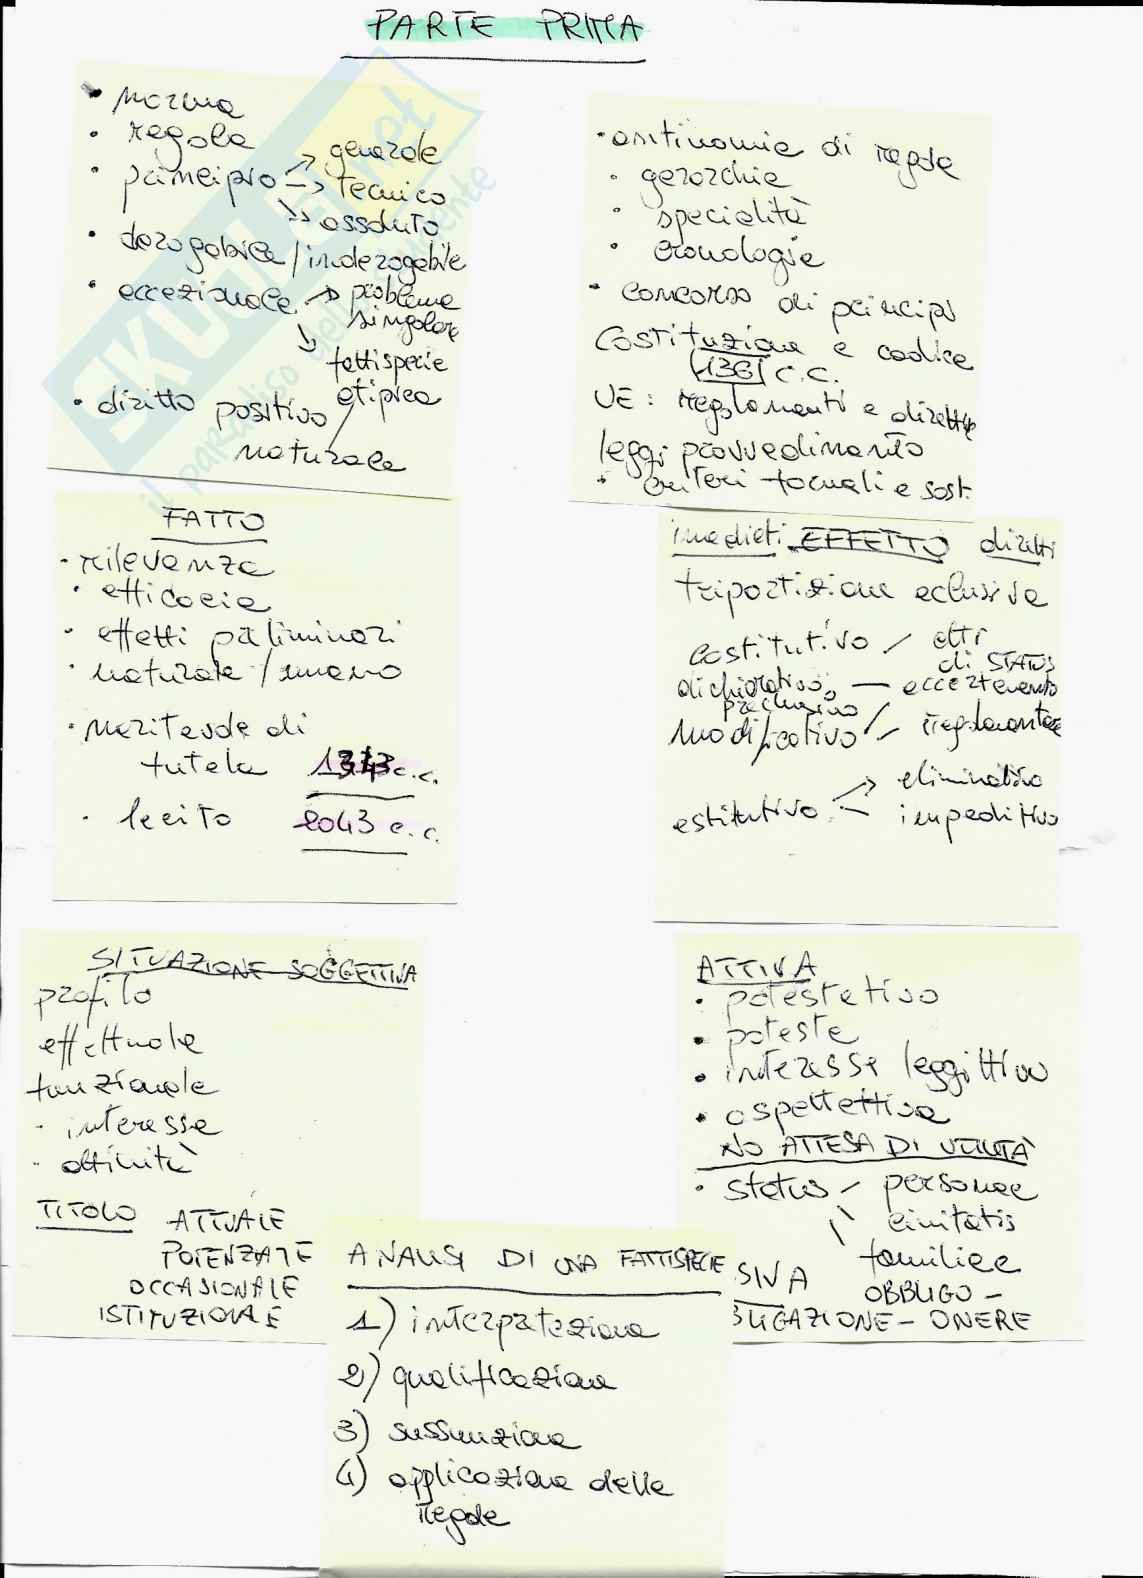 PARTE PRIMA
• norma
• regola
• principio → generale
→ tecnico
→ assoluto
• derogabile / inderogabile
• eccezionale → problema
singolare
→ fattispecie
atipica
• diritto positivo /
naturale
• antinomia di regole
• gerarchia
• specialità
• cronologia
• concorso di principi
Costituzione e codice
1361 c.c.
UE: regolamenti e direttive
leggi provvedimento
• criteri formali e sost.
FATTO
• rilevanza
• efficacia
• effetti preliminari
• naturale / umano
• meritevole di
tutela 1343 c.c.
• lecito 2043 c.c.
immediati EFFETTO diretti
tripartizione eclusiva
costitutivo / atti
di STATUS
dichiarativo, — accertamento
preclusivo
modificativo // regolamentare
estitutivo → eliminativo
— impeditivo
SITUAZIONE SOGGETTIVA
profilo
effettuale
funzionale
• interesse
• attività
TITOLO ATTUALE
POTENZIALE
OCCASIONALE
ISTITUZIONALE
ATTIVA
• potestativo
• potestà
• interesse leggittivo
• aspettativa
NO ATTESA DI UTILITÀ
• status / personae
\\ civitatis
familiae
SIVA
OBBLIGO -
BLIGAZIONE - ONERE
ANALISI DI UNA FATTISPECIE
1) interpretazione
2) qualificazione
3) sussunzione
4) applicazione delle
regole
SKUOLA.net
il paradiso dello studente